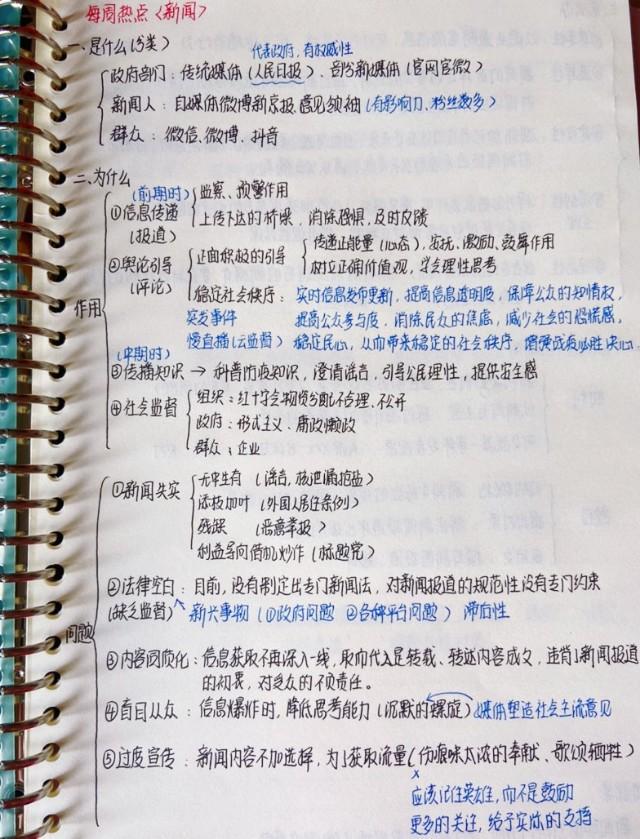 每周热点〈新闻〉
一.是什么(3类)
代表政府,有权威性
政府部门:传统媒体(人民日报)、部分新媒体(官网官微)
新闻人:自媒体微博新京报 意见领袖(有影响力、粉丝数多)
群众:微信、微博、抖音
二.为什么
(前期时)
作用
①信息传递
(报道)
监察、预警作用
上传下达的桥梁,消除恐惧,及时反馈
②舆论引导
(评论)
正面积极的引导
传递正能量(心态),安抚、激励、鼓舞作用
树立正确价值观,学会理性思考
稳定社会秩序:实时信息发布更新,提高信息透明度,保障公众的知情权,
突发事件 提高公众参与度,消除民众的焦虑,减少社会的恐慌感,
慢直播(云监督) 稳定民心,从而带来稳定的社会秩序,增强战疫必胜决心.
(中期时)
③传播知识 → 科普防疫知识,澄清谣言,引导公民理性,提供安全感
④社会监督
组织:红十字会物资分配不合理、不公开
政府:形式主义、庸政懒政
群众、企业
问题
①新闻失实
无中生有(谣言,核泄漏抢盐)
添枝加叶(外国人居住条例)
残缺(恶意举报)
利益导向借机炒作(标题党)
②法律空白:目前,没有制定出专门新闻法,对新闻报道的规范性没有专门约束
(缺乏监督) 新兴事物(①政府问题 ②各种平台问题)滞后性
③内容同质化:信息获取不再深入一线,取而代之是转载、转述内容成文,违背了新闻报道
的初衷,对受众的不负责任。
④盲目从众:信息爆炸时,降低思考能力(沉默的螺旋)媒体塑造社会主流意见
⑤过度宣传:新闻内容不加选择,为了获取流量(伤痕味太浓的奉献、歌颂牺牲)
应该记住英雄,而不是鼓励
更多的关注,给予实质的支持